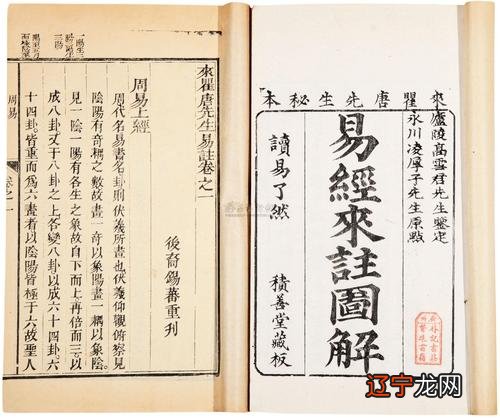 來瞿唐先生秘本
廬陵高雪君先生鑒定
永川凌厚子先生原點
易經來註圖解
讀易了然
積善堂藏板
來瞿唐先生易註卷之一
後裔錫蕃重刊
周易上經
周代名易書名卦則伏羲所畫也伏羲仰觀俯察見
陰陽有奇耦之數故畫一奇以象陽畫一耦以象陰。
見一陰一陽有各生之象故自下而上再倍而三以
成八卦又于八卦之上各變八卦以成六十四卦六
十四卦。皆重而爲六畫者以陰陽皆極于六故聖人
周易
卷之一
辽宁龙网